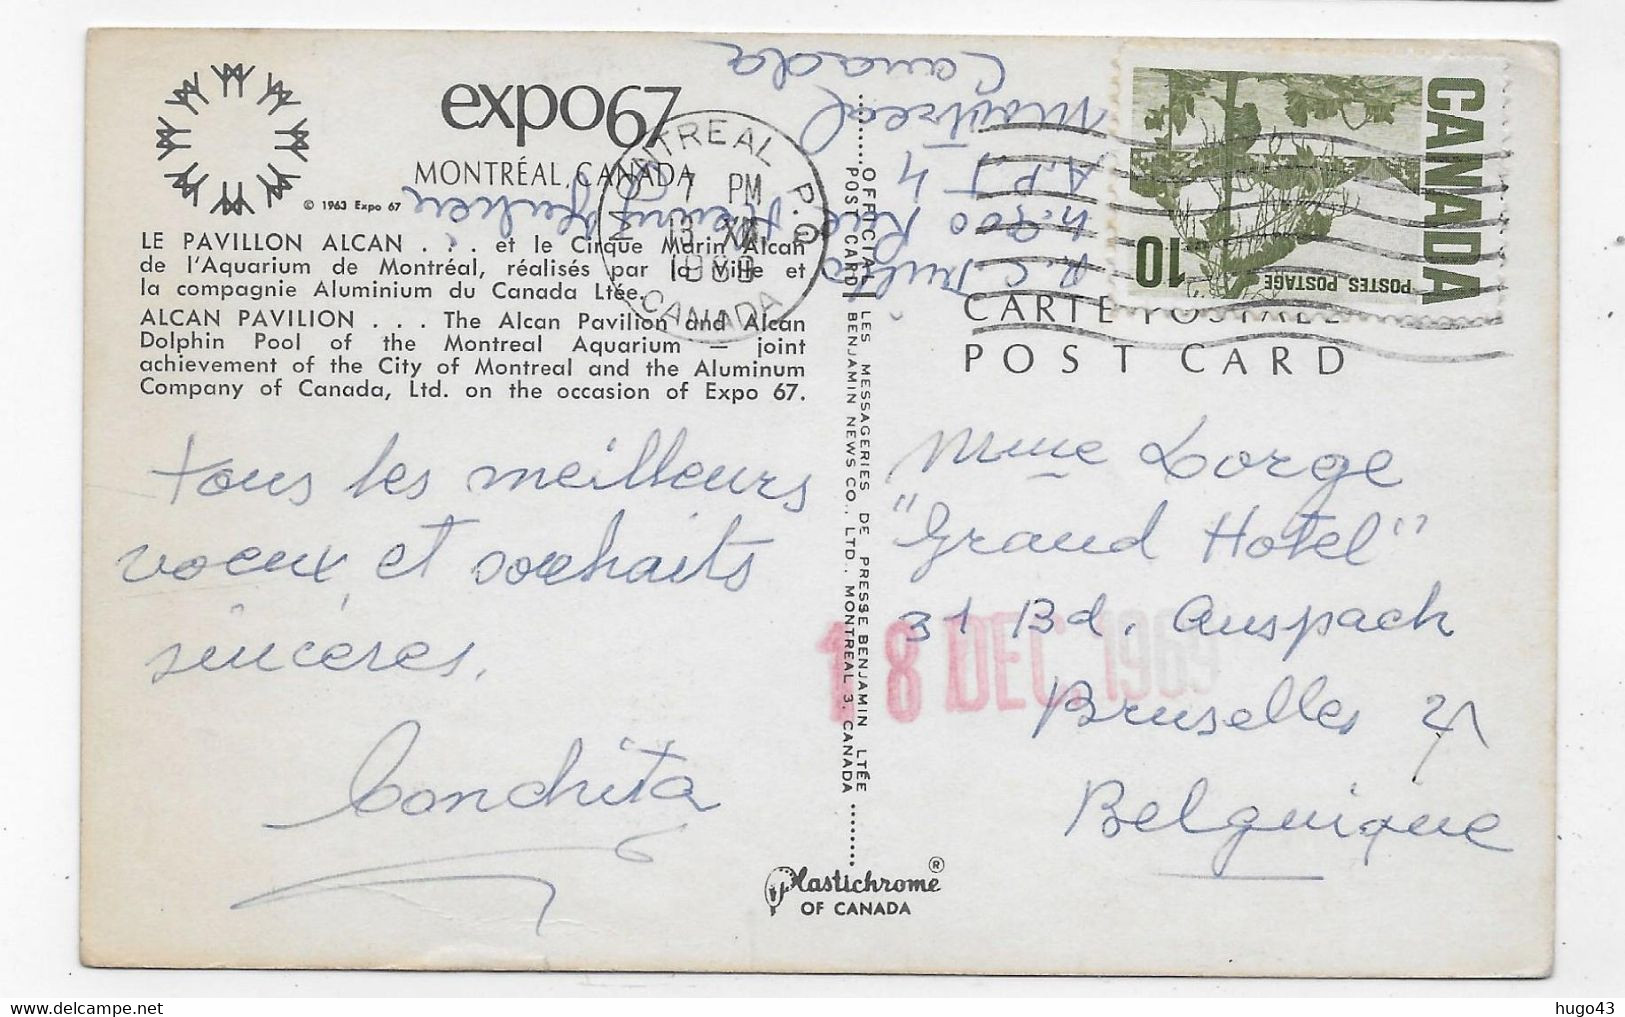 expo67
MONTRÉAL, CANADA
© 1963 Expo 67
LE PAVILLON ALCAN . . . et le Cirque Marin Alcan
de l'Aquarium de Montréal, réalisés par la Ville et
la compagnie Aluminium du Canada Ltée.
ALCAN PAVILION . . . The Alcan Pavilion and Alcan
Dolphin Pool of the Montreal Aquarium — joint
achievement of the City of Montreal and the Aluminum
Company of Canada, Ltd. on the occasion of Expo 67.
MONTREAL P.Q.
7 PM
13 XII
1969
CANADA
4.900 Rue
APT 4
Montreal
Canada
CANADA
10
POSTES POSTAGE
CARTE POSTALE
POST CARD
OFFICIAL LES MESSAGERIES DE PRESSE BENJAMIN LTÉE
POST CARD BENJAMIN NEWS CO., LTD. MONTREAL 3, CANADA
tous les meilleurs
voeux et souhaits
sincères.
Conchita
Mme Lorge
"Grand Hotel"
31 Bd. Auspach
Bruxelles
Belguique
18 DEC. 1969
Plastichrome ®
OF CANADA
hugo43